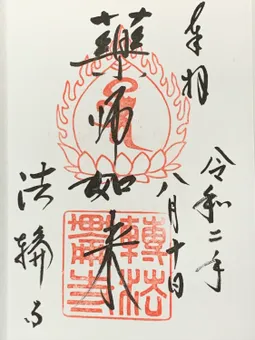 奉拝
令和二年
八月十日
薬師如来
法輪寺